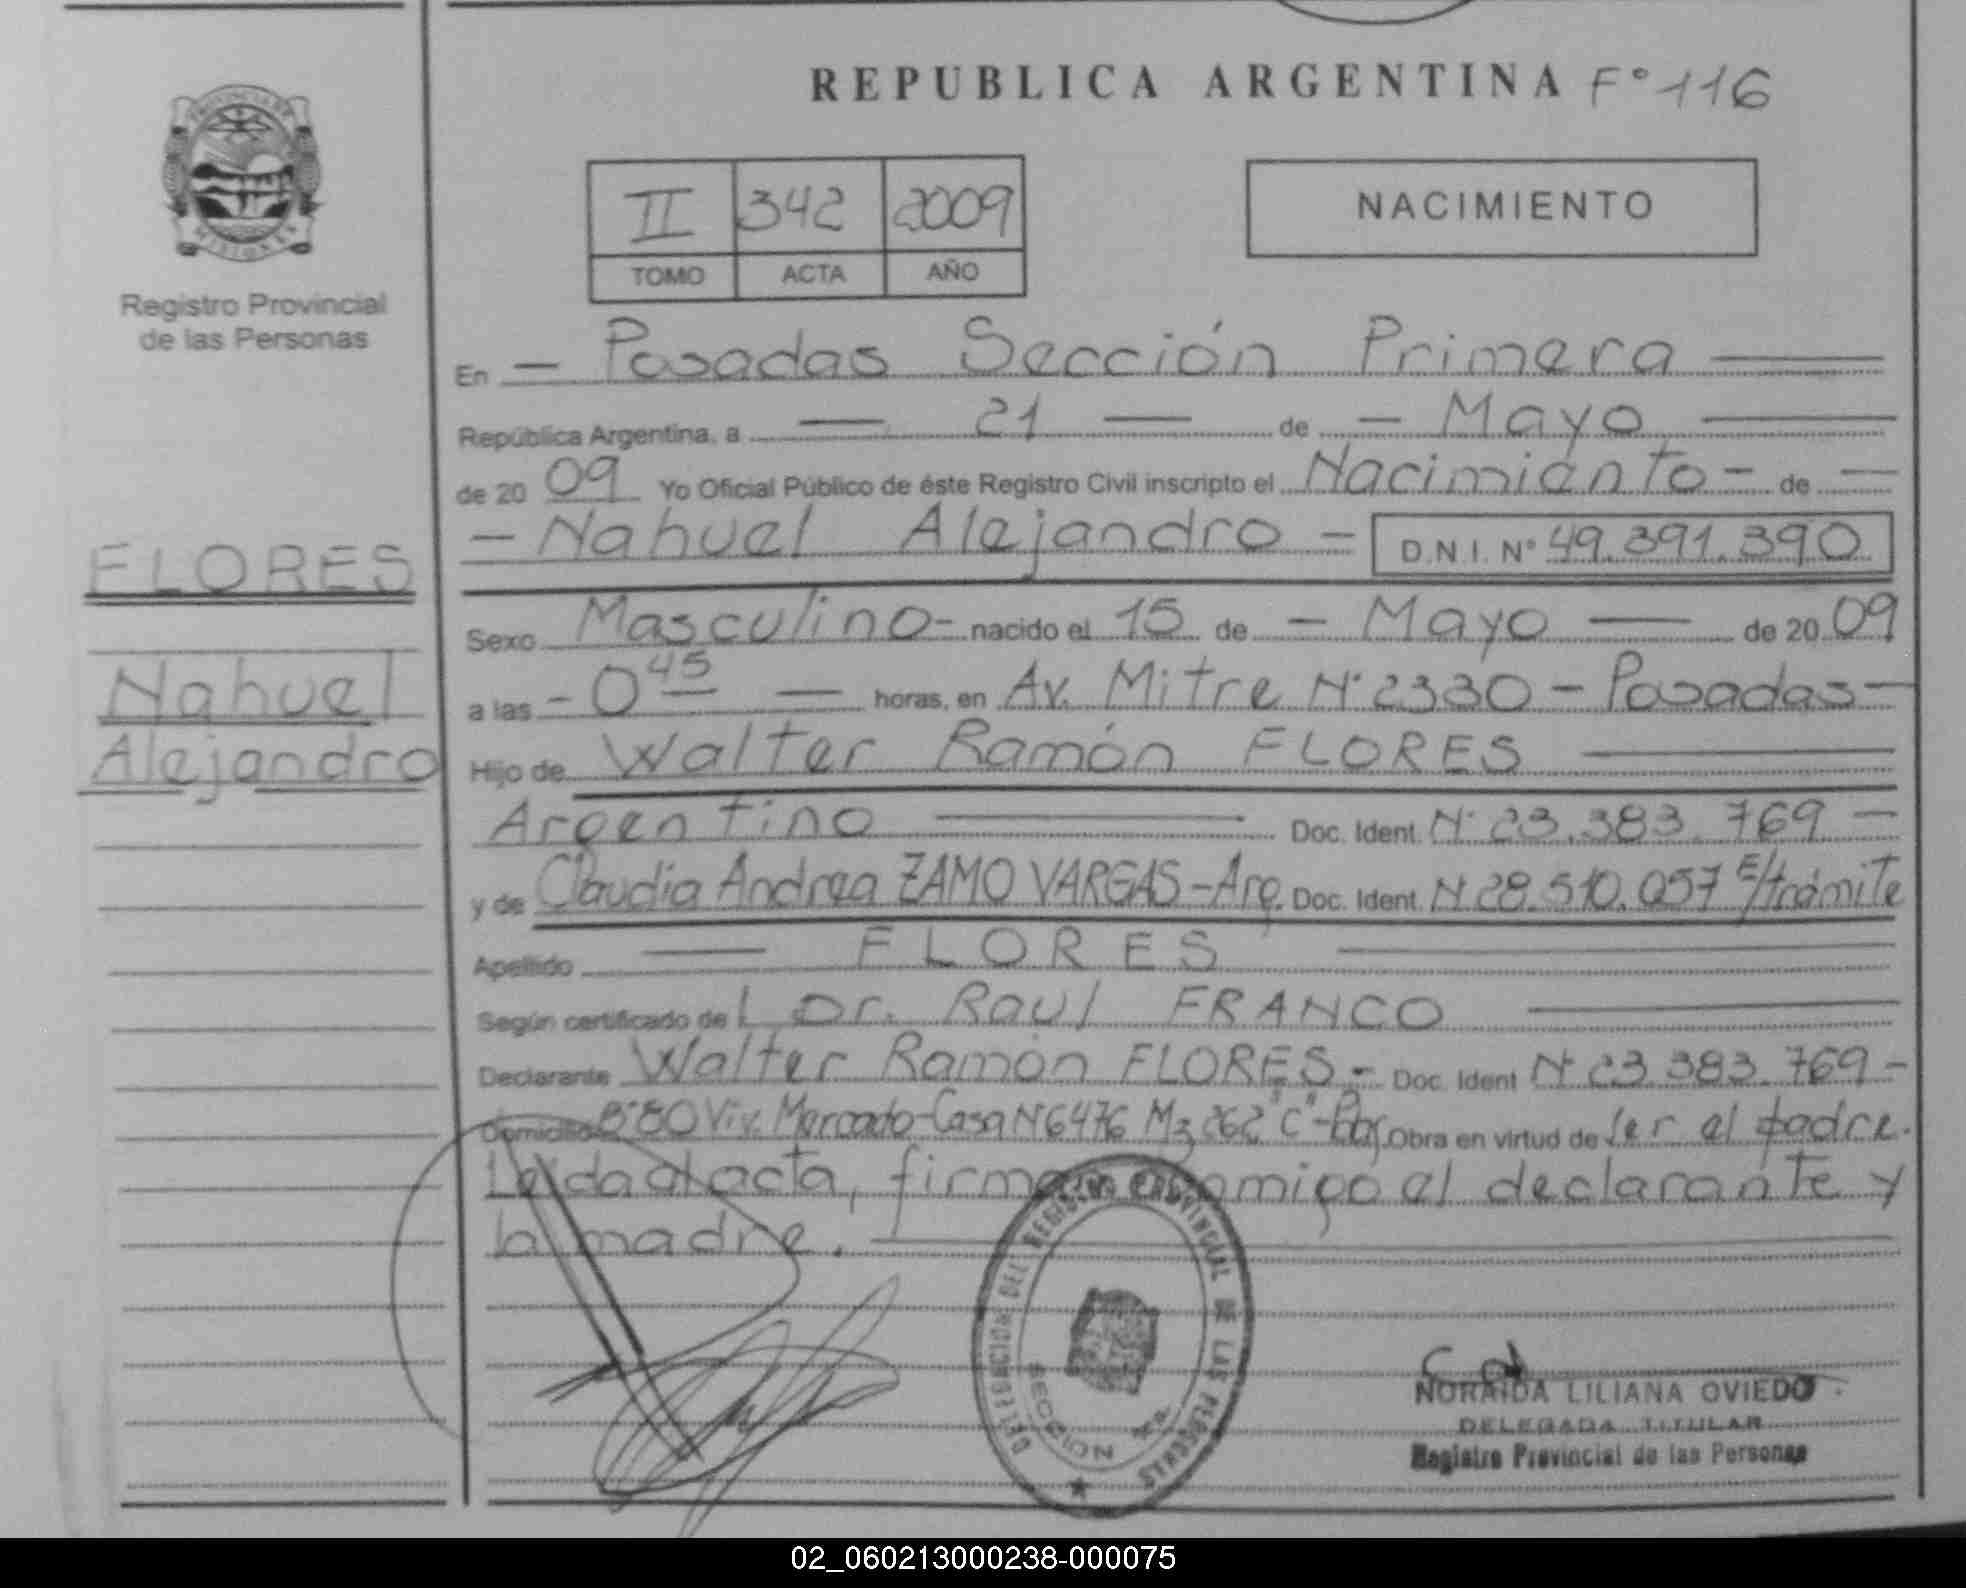 REPUBLICA ARGENTINA F° 116
PROVINCIA DE
MISIONES
Registro Provincial
de las Personas
II 342 2009
TOMO ACTA AÑO
NACIMIENTO
En - Posadas Sección Primera
República Argentina, a 21 de - Mayo
de 20 09 Yo Oficial Público de éste Registro Civil inscripto el Nacimiento - de
- Nahuel Alejandro - D.N.I. N° 49.391.390
FLORES
Nahuel
Alejandro
Sexo Masculino - nacido el 15 de - Mayo de 20 09
a las - 0 45 horas, en Av. Mitre N° 2330 - Posadas -
Hijo de Walter Ramón FLORES
Argentino Doc. Ident. N° 23.383.769 -
y de Claudia Andrea ZAMO VARGAS - Arg. Doc. Ident. N 28.510.057 E/trámite
Apellido FLORES
Según certificado de l Dr. Raul FRANCO
Declarante Walter Ramón FLORES - Doc. Ident N° 23.383.769 -
Domicilio B° 80 Viv. Mercado - Casa N° 6476 Mz 262 "C" - Obra en virtud de ser el padre.
Leida el acta, firman conmigo el declarante y
la madre.
DELEGACION DEL REGISTRO PROVINCIAL DE LAS PERSONAS
SECCION 1ra.
NORAIDA LILIANA OVIEDO
DELEGADA TITULAR
Registro Provincial de las Personas
02_060213000238-000075